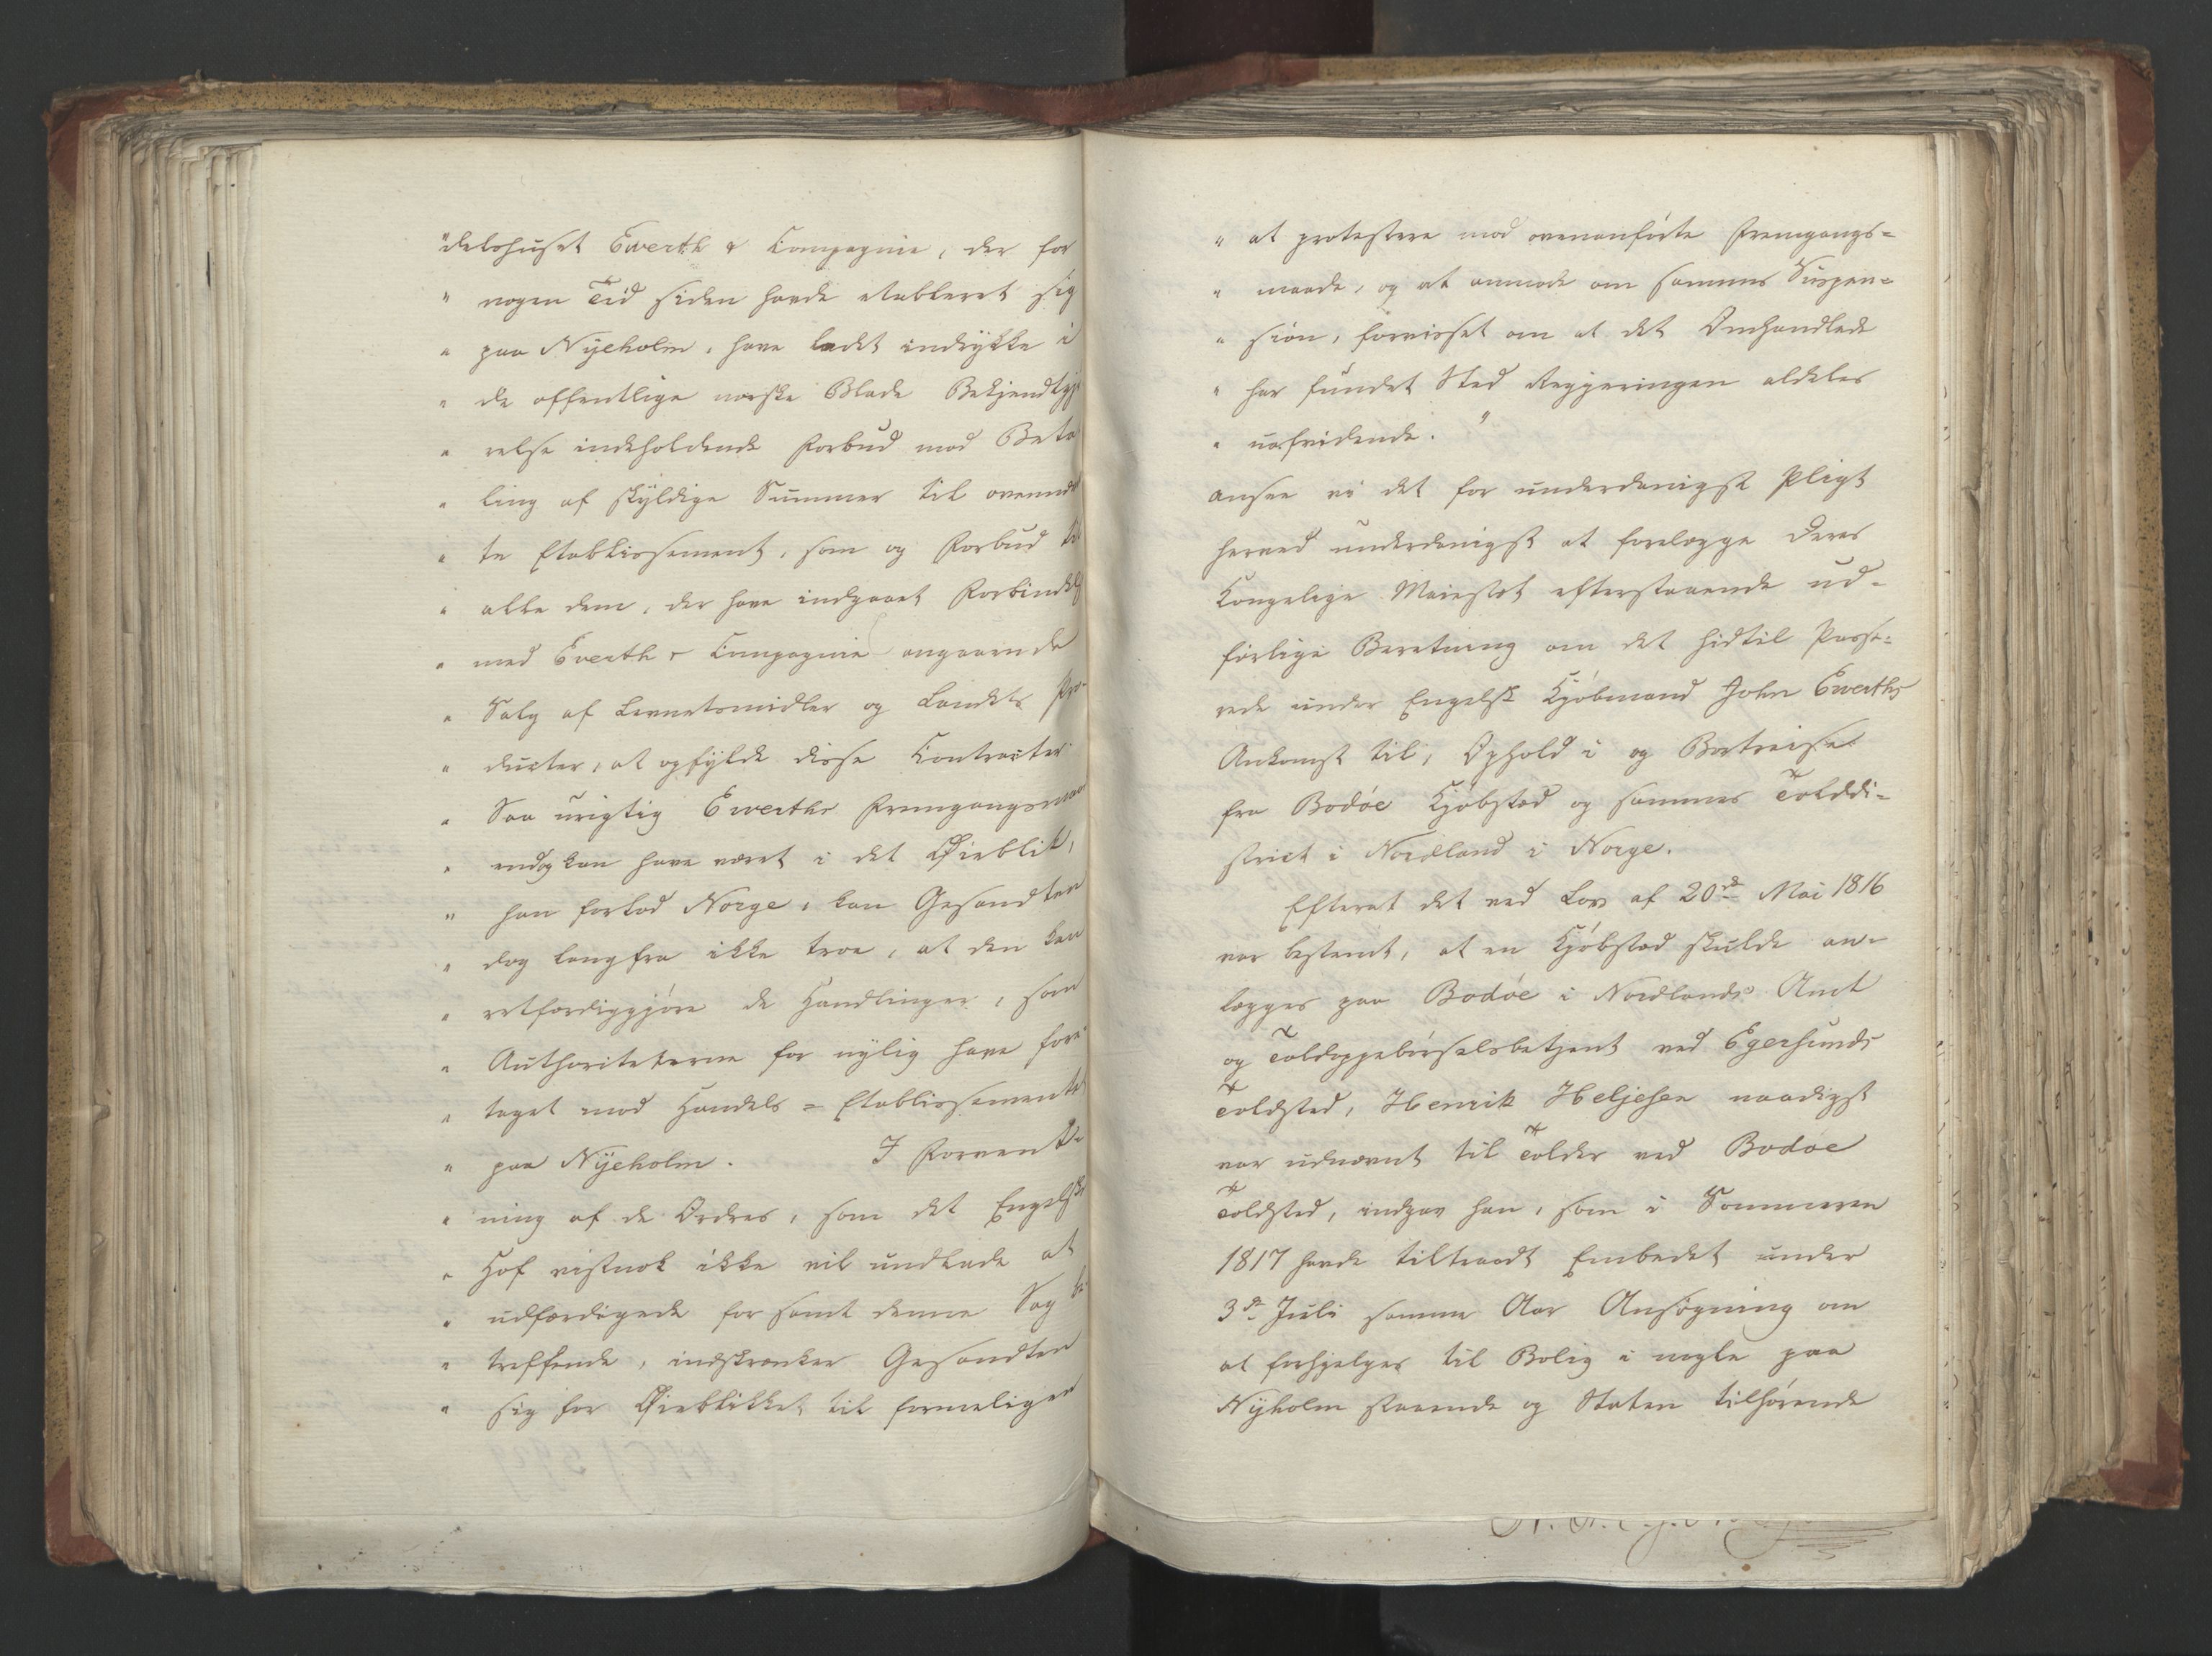 "delshuset Everth & Compagnie, der for
" nogen Tid siden havde etableret sig
" paa Nyeholm, have ladet indrykke i
" de offentlige norske Blade Bekjendtgjø
" relse indeholdende Forbud mod Beta
" ling af skyldige Summer til ovenmeld
" te Etablissement, som og Forbud til
" alle dem, der have indgaaet Forbindelse
" med Everth & Compagnie angaaende
" Salg af Levnetsmidler og Landets Pro-
" ducter, at opfylde disse Contracter.
" Saa urigtig Everths Fremgangsmaa
" endog kan have været i det Øieblik,
" han forlod Norge, kan Gesandten
" dog langfra ikke troe, at den kan
" retfærdiggjøre de Handlinger, som
" Authoriteterne for nylig have fore
" taget mod Handels=Etablissementet
" paa Nyeholm. I Forvent-
" ning af de Ordres, som det Engelske
" Hof vistnok ikke vil undlade at
" udfærdigede forsamt denne Sag be
" treffende, indskrænker Gesandten
" sig for Øieblikket til formeligen
" at protestere mod ovenanførte Fremgangs=
" maade, og at anmode om sammes Suspen=
" sion, forvisset om at det Omhandlede
" har fundet Sted Regjeringen aldeles
" uafvidende. "
ansee vi det for underdanigst Pligt
herved underdanigst at forelægge Deres
Kongelige Maiestæt efterstaaende ud-
førlige Beretning om det hidtil Passe=
rede under Engelsk Kjøbmand John Everths
Ankomst til, Ophold i og Bortreise
fra Bodøe Kjøbstad og sammes Tolddi=
strict i Nordland i Norge.
Efterat det ved Lov af 20de Mai 1816
var bestemt, at en Kjøbstad skulde an-
lægges paa Bodøe i Nordlands Amt
og Toldoppebørselsbetjent ved Egersunds
Toldsted, Henrik Heljesen naadigst
var udnævnt til Tolder ved Bodøe
Toldsted, indgav han, som i Sommeren
1817 havde tiltraadt Embedet under
3de Juli samme Aar Ansøgning om
at forhjelpes til Bolig i nogle paa
Nyholm staaende og Staten tilhørende